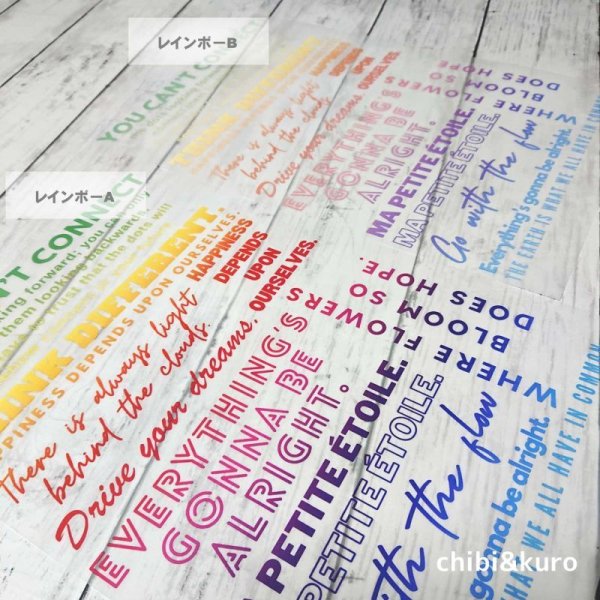 レインボーB
YOU CAN'T CONNECT
THINK DIFFERENT
HAPPINESS
DEPENDS
UPON
OURSELVES.
There is always light
behind the clouds.
Drive your dreams.
EVERYTHING'S
GONNA BE
ALRIGHT.
MA PETITE ÉTOILE.
MA PETITE ÉTOILE.
WHERE FLOWERS
BLOOM SO
DOES HOPE
Go with the flow
Everything's gonna be alright.
THE EARTH IS WHAT WE ALL HAVE IN COMMON
レインボーA
N'T CONNECT
ing forward; you can
them looking backwards.
trust that the dots will
INK DIFFERENT
PPINESS DEPENDS UPON OURSELVES.
HAPPINESS
DEPENDS
UPON
OURSELVES.
There is always light
behind the clouds.
Drive your dreams.
EVERYTHING'S
GONNA BE
ALRIGHT.
PETITE ÉTOILE.
PETITE ÉTOILE.
WHERE FLOWERS
BLOOM SO
DOES HOPE.
ith the flow
gonna be alright.
HAT WE ALL HAVE IN COMMON
chibi&kuro